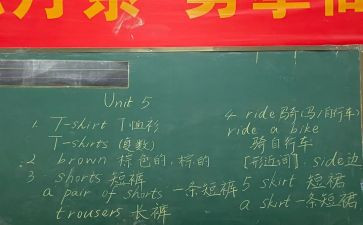 Unit 5
1. T-shirt T恤衫
T-shirts (复数)
2 brown 棕色的,棕的
3 shorts 短裤
a pair of shorts 一条短裤
trousers 长裤
4 ride 骑(马/自行车)
ride a bike
骑自行车
[形近词]: side边
5 skirt 短裙
a skirt 一条短裙